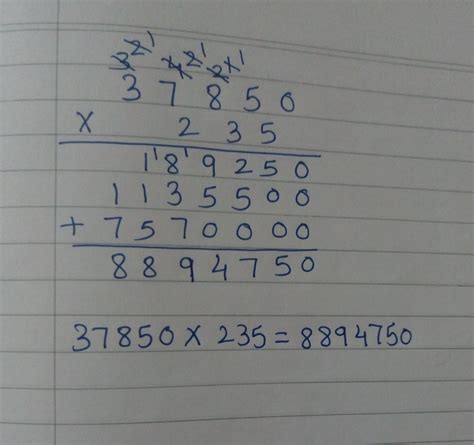 3 2 1 4 2 1 2 1 1
3 7 8 5 0
x 2 3 5
1 1 8 1 9 2 5 0
1 1 3 5 5 0 0
+ 7 5 7 0 0 0 0
8 8 9 4 7 5 0
37850 x 235 = 8894750